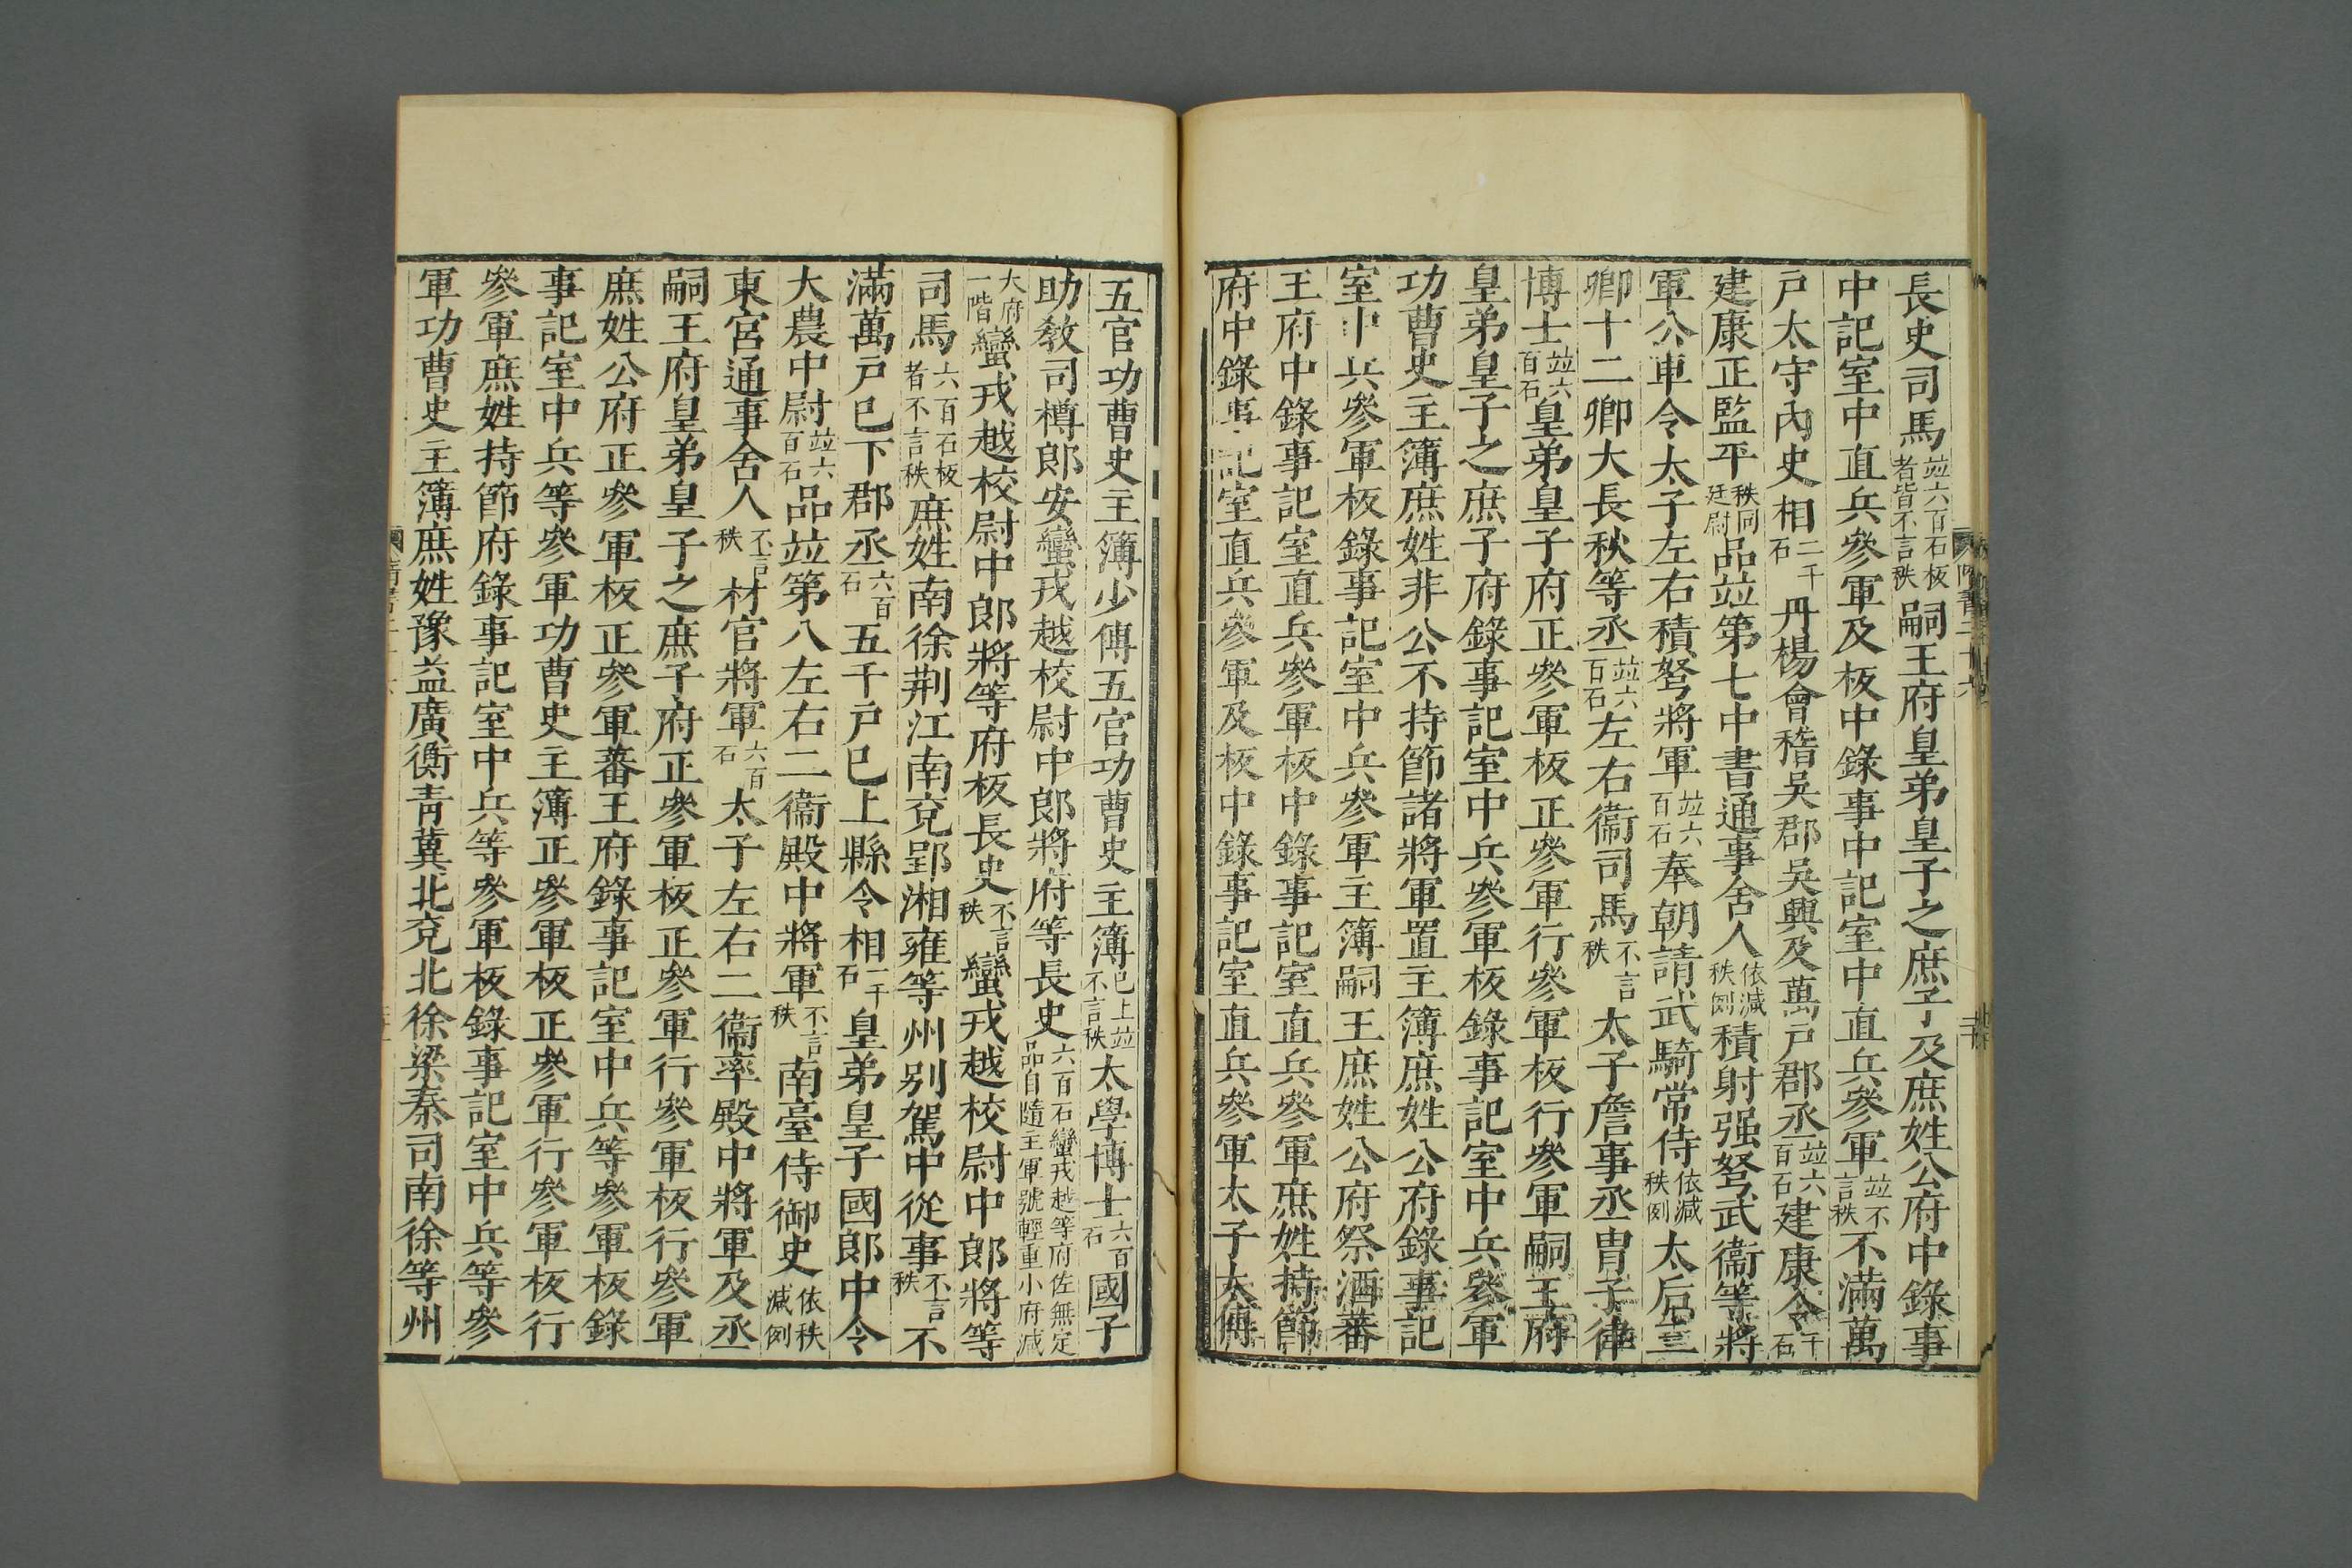 長史司馬竝六百石板者皆不言秩嗣王府皇弟皇子之庶子及庶姓公府中錄事
中記室中直兵參軍及板中錄事中記室中直兵參軍竝不言秩不滿萬
戸太守內史相二千石丹楊會稽吳郡吳興及萬戸郡丞竝六百石建康令千石
建康正監平秩同廷尉品竝第七中書通事舍人依減秩例積射强弩武衞等將
軍公車令太子左右積弩將軍竝六百石奉朝請武騎常侍依減秩例太后三
卿十二卿大長秋等丞竝六百石左右衞司馬不言秩太子詹事丞胄子律
博士竝六百石皇弟皇子府正參軍板正參軍行參軍板行參軍嗣王府
皇弟皇子之庶子府錄事記室中兵參軍板錄事記室中兵參軍
功曹史主簿庶姓非公不持節諸將軍置主簿庶姓公府錄事記
室中兵參軍板錄事記室中兵參軍主簿嗣王庶姓公府祭酒蕃
王府中錄事記室直兵參軍板中錄事記室直兵參軍庶姓持節
府中錄事記室直兵參軍及板中錄事記室直兵參軍太子太傅
五官功曹史主簿少傅五官功曹史主簿已上竝不言秩太學博士六百石國子
助敎司樽郎安蠻戎越校尉中郎將府等長史六百石蠻戎越等府佐無定品自隨主軍號輕重小府減
大府一階蠻戎越校尉中郎將等府板長史不言秩蠻戎越校尉中郎將等
司馬六百石板者不言秩庶姓南徐荆江南兗郢湘雍等州别駕中從事不言秩不
滿萬戸已下郡丞六百石五千戸已上縣令相一千石皇弟皇子國郎中令
大農中尉竝六百石品竝第八左右二衞殿中將軍不言秩南臺侍御史依秩減例
東宮通事舍人不言秩材官將軍六百石太子左右二衞率殿中將軍及丞
嗣王府皇弟皇子之庶子府正參軍板正參軍行參軍板行參軍
庶姓公府正參軍板正參軍蕃王府錄事記室中兵等參軍板錄
事記室中兵等參軍功曹史主簿正參軍板正參軍行參軍板行
參軍庶姓持節府錄事記室中兵等參軍板錄事記室中兵等參
軍功曹史主簿庶姓豫益廣衡靑冀北兗北徐梁秦司南徐等州